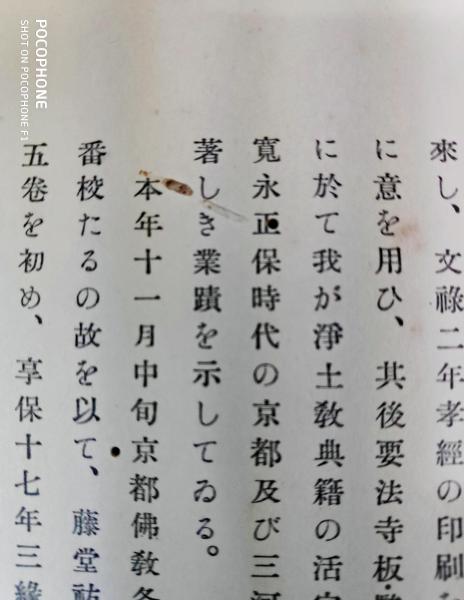 來し、文祿二年孝經の印刷
に意を用ひ、其後要法寺板
に於て我が淨土敎典籍の活
寬永正保時代の京都及び三河
著しき業蹟を示してゐる。
本年十一月中旬京都佛敎各
番校たるの故を以て、藤堂祐
五卷を初め、享保十七年三緣
POCOPHONE
SHOT ON POCOPHONE F1